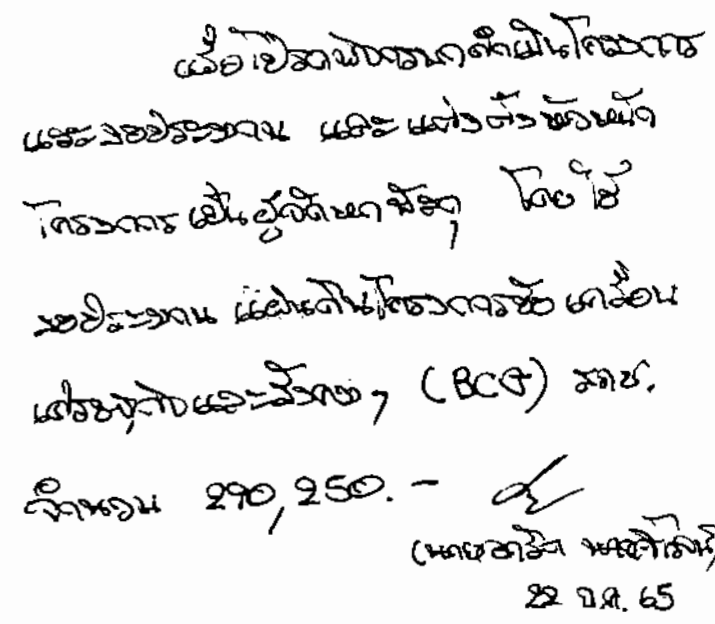 เพื่อโปรดพิจารณาดำเนินโครงการ
และงบประมาณ และแต่งตั้งหัวหน้า
โครงการเป็นผู้จัดหาพัสดุ โดยใช้
งบประมาณ แผ่นดินโครงการขับเคลื่อน
เศรษฐกิจและสังคม, (BCG) รคช.
จำนวน 290,250.-
(นาย
22 ธ.ค. 65